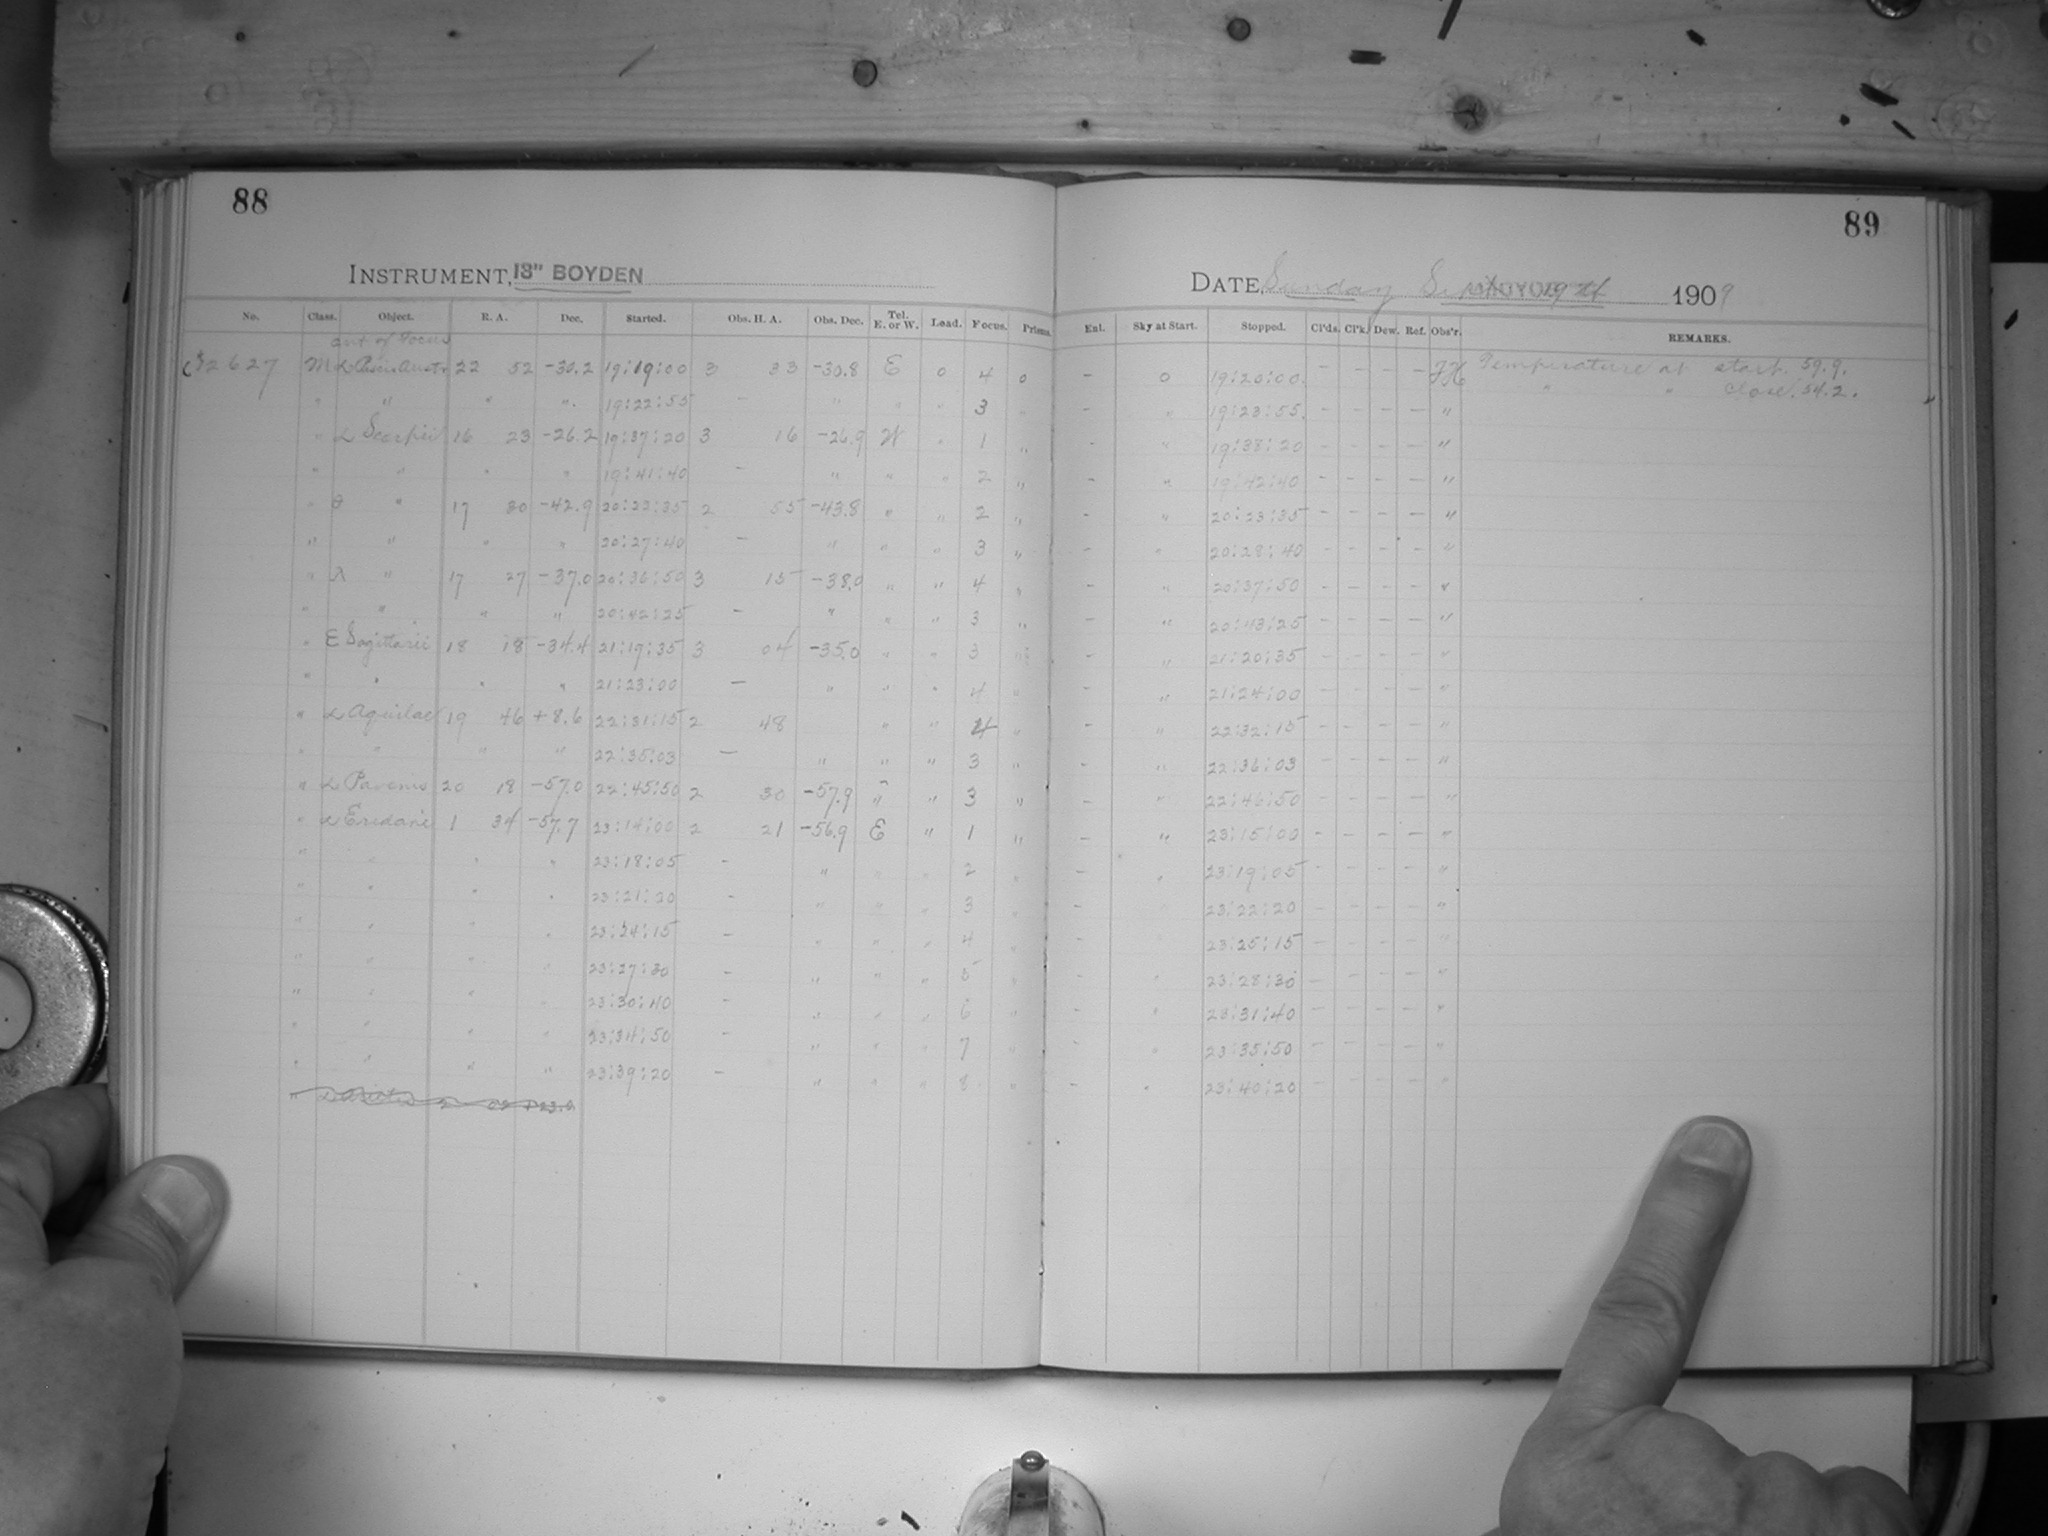 88
INSTRUMENT, 13" BOYDEN
No. Class. Object. R. A. Dec. Started. Obs. H. A. Obs. Dec. Tel. E. or W. Load. Focus. Prisms.
out of Focus
2627 M α Piscis Austr 22 52 -30.2 19:19:00 3 33 -30.8 E 0 4 0
" " " " 19:22:55 - " " " 3 "
" α Scorpii 16 23 -26.2 19:37:20 3 16 -26.9 W " 1 "
" " " " 19:41:40 - " " " 2 "
" θ " 17 30 -42.9 20:23:35 2 55 -43.8 " " 2 "
" " " " 20:27:40 - " " " 3 "
" λ " 17 27 -37.0 20:36:50 3 15 -38.0 " " 4 "
" " " " 20:42:25 - " " " 3 "
" ε Sagittarii 18 18 -34.4 21:19:35 3 04 -35.0 " " 3 "
" " " " 21:23:00 - " " " 4 "
" α Aquilae 19 46 +8.6 22:31:15 2 48 " " 4 "
" " " " 22:35:03 - " " " 3 "
" α Pavonis 20 18 -57.0 22:45:50 2 30 -57.9 " " 3 "
" α Eridani 1 34 -57.7 23:14:00 2 21 -56.9 E " 1 "
" " " " 23:18:05 - " " " 2 "
" " " " 23:21:20 - " " " 3 "
" " " " 23:24:15 - " " " 4 "
" " " " 23:27:30 - " " " 5 "
" " " " 23:30:40 - " " " 6 "
" " " " 23:34:50 - " " " 7 "
" " " " 23:39:20 - " " " 8 "
89
DATE Sunday Sept 19 1909
Ent. Sky at Start. Stopped. Cl'ds. Cl'k. Dew. Ref. Obs'r. REMARKS.
- 0 19:20:00 - - - - Temperature at start. 59.9.
" " close. 54.2.
- " 19:23:55 - - - - "
- " 19:38:20 - - - - "
- " 19:42:40 - - - - "
- " 20:23:35 - - - - "
- " 20:28:40 - - - - "
- " 20:37:50 - - - - "
- " 20:43:25 - - - - "
- " 21:20:35 - - - - "
- " 21:24:00 - - - - "
- " 22:32:15 - - - - "
- " 22:36:03 - - - - "
- " 22:46:50 - - - - "
- " 23:15:00 - - - - "
- " 23:19:05 - - - - "
- " 23:22:20 - - - - "
- " 23:25:15 - - - - "
- " 23:28:30 - - - - "
- " 23:31:40 - - - - "
- " 23:35:50 - - - - "
- " 23:40:20 - - - - "